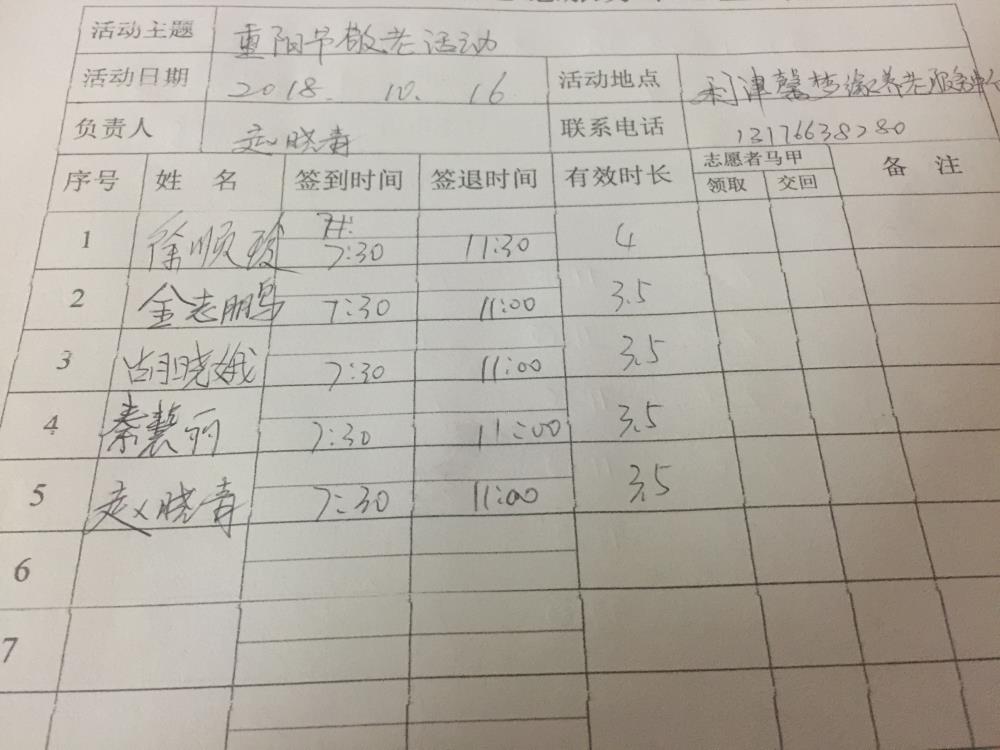 活动主题 重阳节敬老活动
活动日期 2018. 10. 16 活动地点 利津馨梦缘养老服务中心
负责人 赵晓青 联系电话 13176638280
序号 姓 名 签到时间 签退时间 有效时长 志愿者马甲 备 注
领取 交回
1 徐顺玻 7:30 11:30 4
2 金志鹏 7:30 11:00 3.5
3 胡晓娥 7:30 11:00 3.5
4 秦慧丽 7:30 11:00 3.5
5 赵晓青 7:30 11:00 3.5
6
7